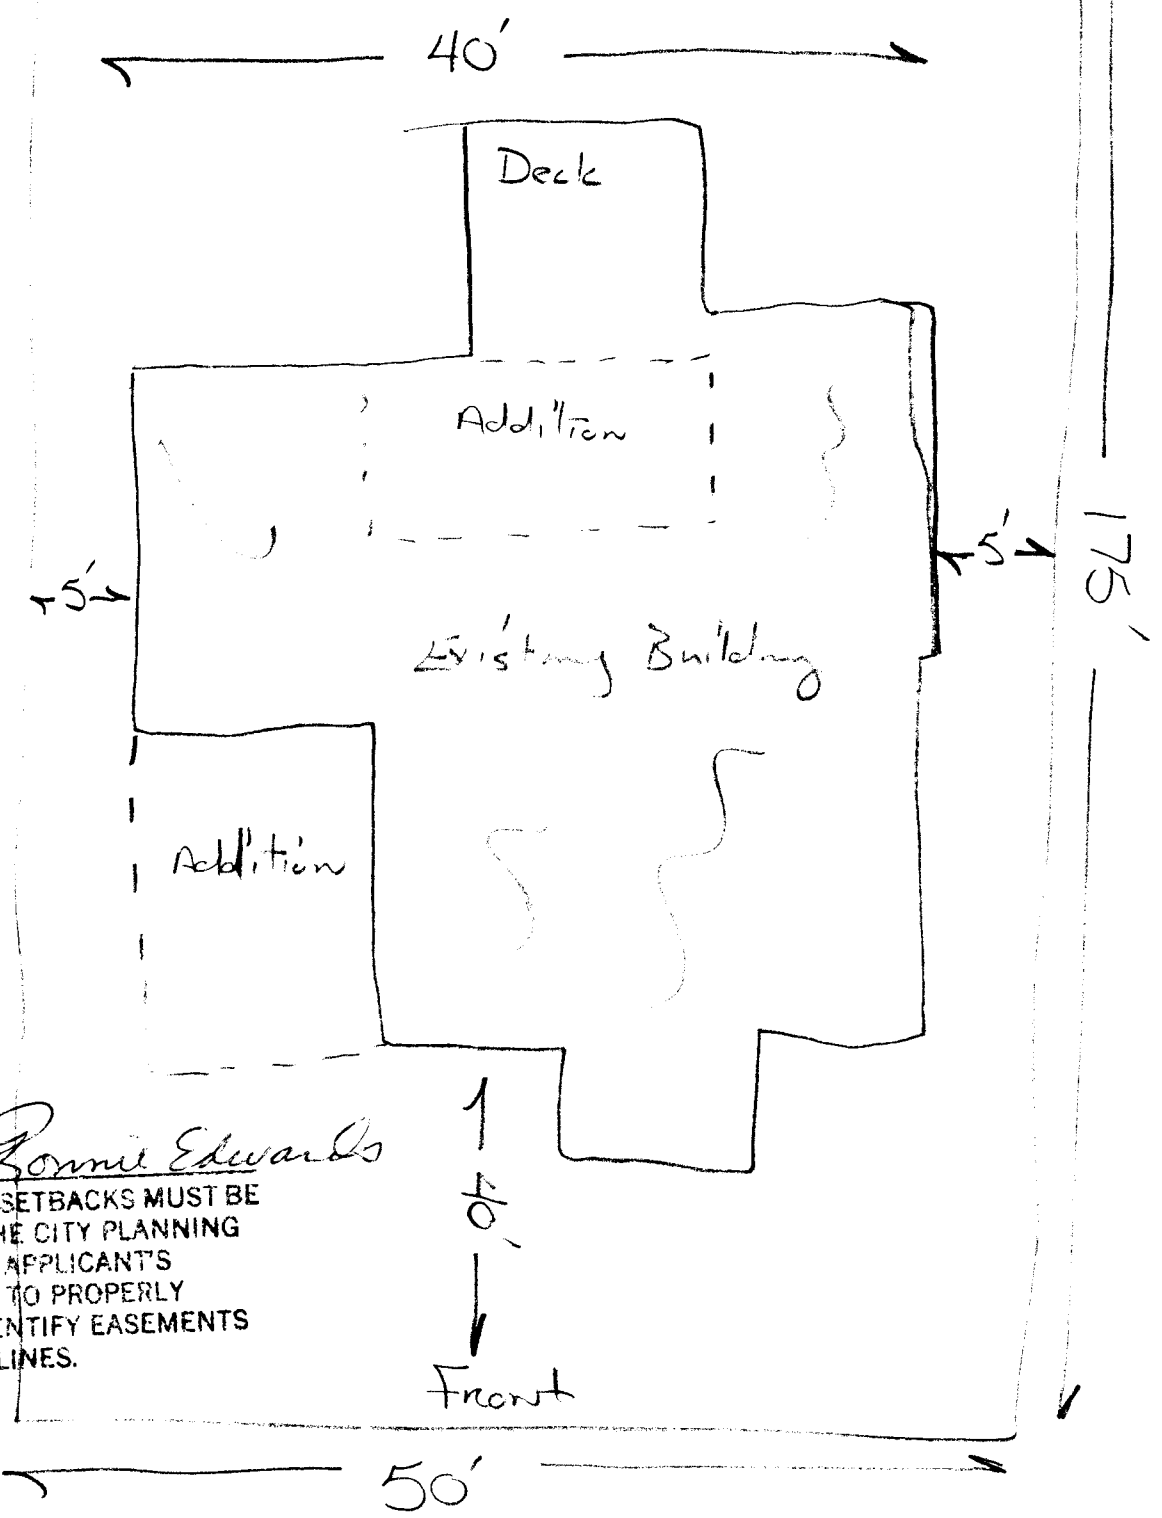 40'
Deck
Addition
5'
175'
5'
Existing Building
Addition
Ronnie Edwards
SETBACKS MUST BE
HE CITY PLANNING
APPLICANT'S
TO PROPERLY
ENTIFY EASEMENTS
LINES.
Front
50'